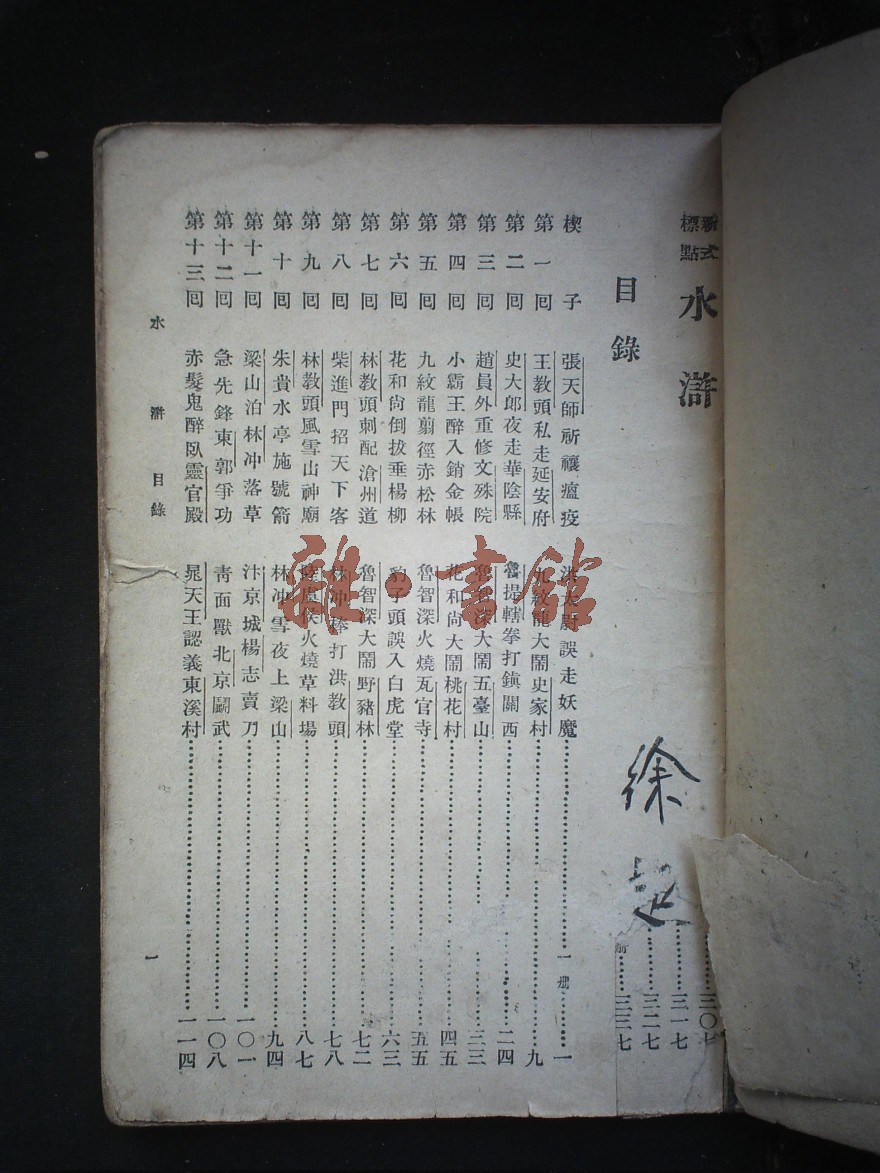 新式標點 水滸
目錄
楔子 張天師祈禳瘟疫 洪太尉誤走妖魔 一册 一
第一回 王教頭私走延安府 九紋龍大鬧史家村 九
第二回 史大郎夜走華陰縣 魯提轄拳打鎮關西 二四
第三回 趙員外重修文殊院 魯智深大鬧五臺山 三三
第四回 小霸王醉入銷金帳 花和尚大鬧桃花村 四五
第五回 九紋龍翦徑赤松林 魯智深火燒瓦官寺 五五
第六回 花和尚倒拔垂楊柳 豹子頭誤入白虎堂 六三
第七回 林教頭刺配滄州道 魯智深大鬧野豬林 七二
第八回 柴進門招天下客 林冲棒打洪教頭 七八
第九回 林教頭風雪山神廟 陸虞侯火燒草料場 八七
第十回 朱貴水亭施號箭 林冲雪夜上梁山 九四
第十一回 梁山泊林冲落草 汴京城楊志賣刀 一〇一
第十二回 急先鋒東郭爭功 青面獸北京鬭武 一〇八
第十三回 赤髮鬼醉臥靈官殿 晁天王認義東溪村 一一四
水滸 目錄
一
徐
三〇七
三一七
三二七
三三七
雜·書館